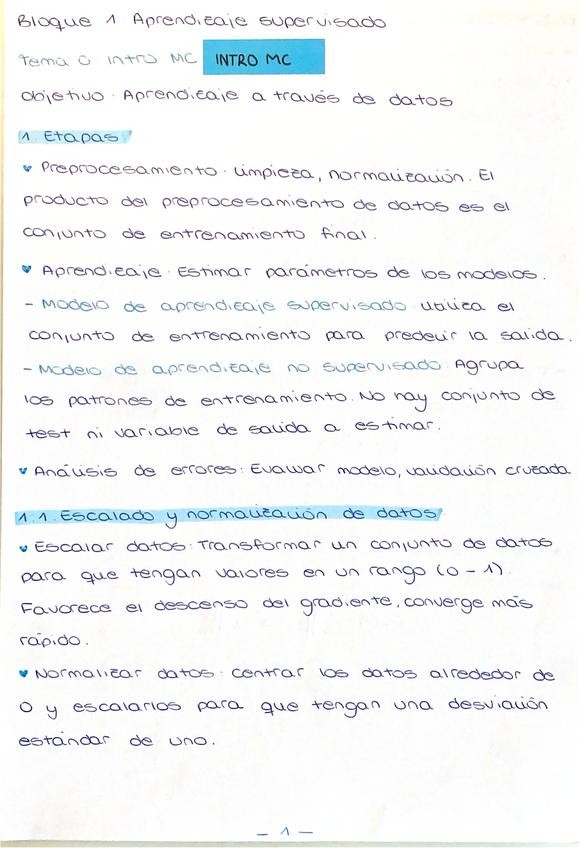 Bloque 1 Aprendizaje supervisado
Tema 0 intro MC INTRO MC
objetivo. Aprendizaje a través de datos
1. Etapas
Preprocesamiento. Limpieza, normalización. El
producto del preprocesamiento de datos es el
conjunto de entrenamiento final.
Aprendizaje. Estimar parámetros de los modelos.
- Modelo de aprendizaje supervisado. Utiliza el
conjunto de entrenamiento para predecir la salida.
- Modelo de aprendizaje no supervisado. Agrupa
los patrones de entrenamiento. No hay conjunto de
test ni variable de salida a estimar.
Análisis de errores: Evaluar modelo, validación cruzada
1.1. Escalado y normalización de datos
Escalar datos: Transformar un conjunto de datos
para que tengan valores en un rango (0-1).
Favorece el descenso del gradiente, converge más
rápido.
Normalizar datos: centrar los datos alrededor de
0 y escalarlos para que tengan una desviación
estándar de uno.
- 1 -